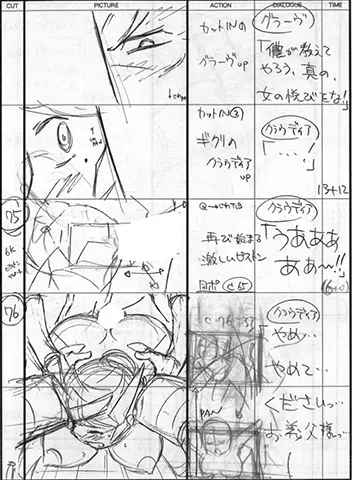 CUT PICTURE ACTION DIALOGUE TIME
カットINの
グラーヴup
グラーヴ
「僕が教えて
やろう、真の、
女の悦びをな!」
カットIN③
ギクリの
クラウディア
up
クラウディア
「…!」
13+12
75
再び始まる
激しいピストン
クラウディア
「うあああ
ああ〜!!
(6+0)
76
クラウディア
「やめ…
やめて…
くださいっ…
お義父様っ…
PAN